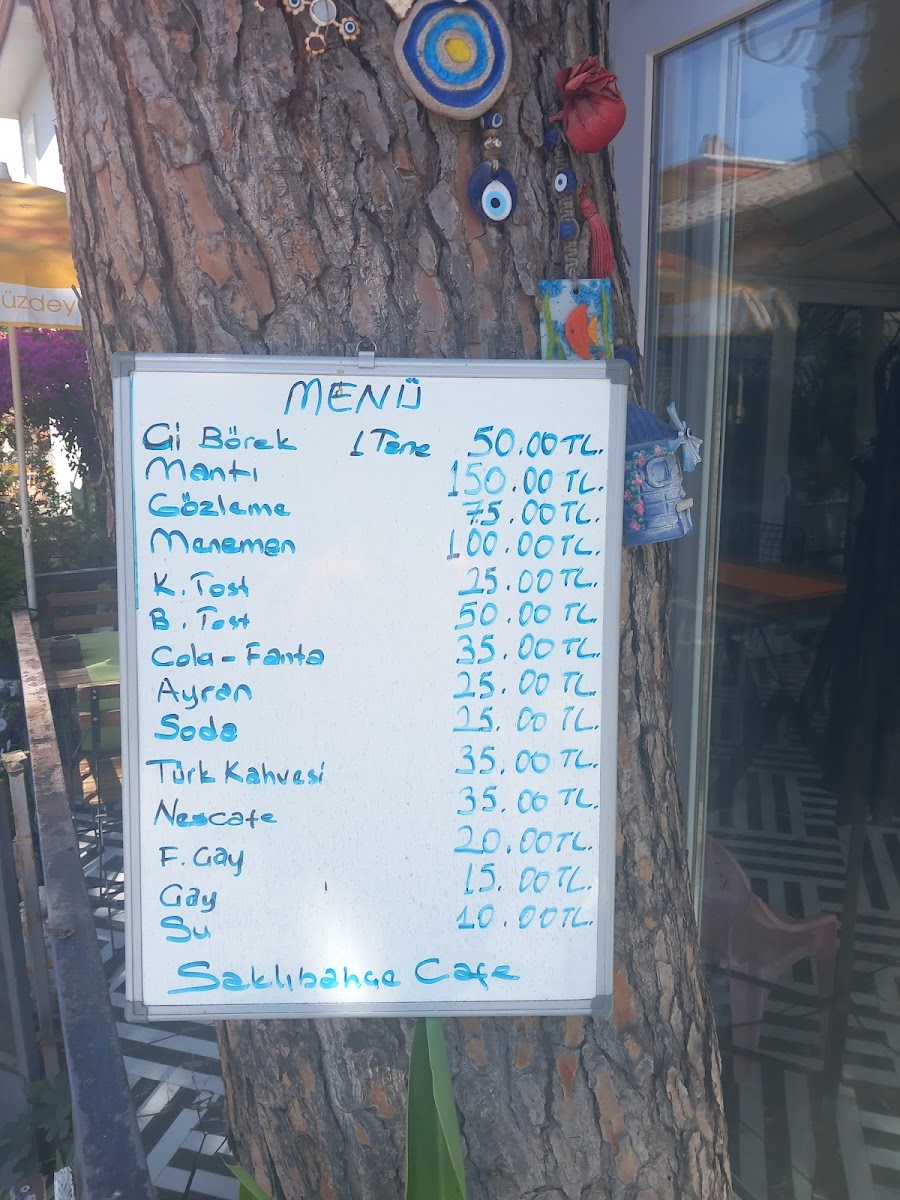 üzdey
MENÜ
Gi Börek 1 Tane 50.00 TL.
Mantı 150.00 TL.
Gözleme 75.00 TL.
Menemen 100.00 TL.
K. Tost 25.00 TL.
B. Tost 50.00 TL.
Cola - Fanta 35.00 TL.
Ayran 25.00 TL.
Soda 25.00 TL.
Türk Kahvesi 35.00 TL.
Nescafe 35.00 TL.
F. Çay 20.00 TL.
Çay 15.00 TL.
Su 10.00 TL.
Saklıbahçe Cafe